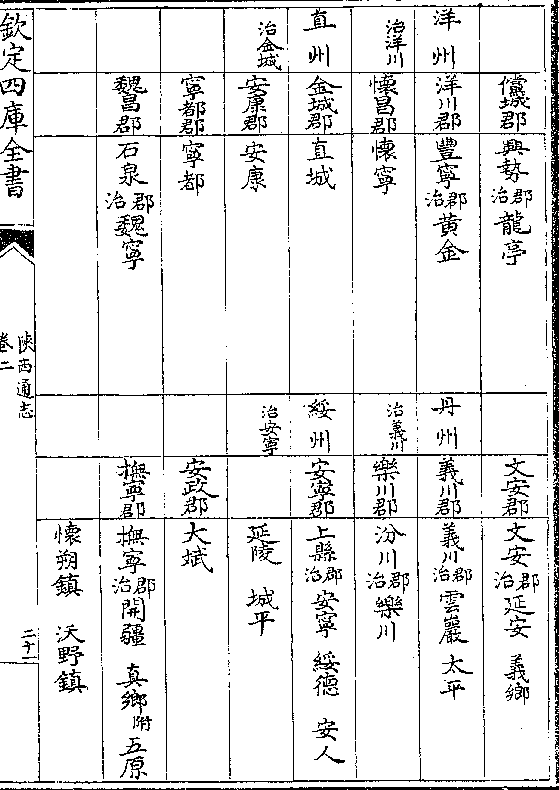 儻城郡 興勢郡治 龍亭
洋州 洋川郡 豐寧郡治 黄金
治洋川 懷昌郡 懷寧
直州 金城郡 直城
治金城 安康郡 安康
寧都郡 寧都
魏昌郡 石泉郡治 魏寧
文安郡 文安郡治 延安 義鄉
丹州 義川郡 義川郡治 雲巖 太平
治義川 樂川郡 汾川郡治 樂川
綏州 安寧郡 上縣郡治 安寧 綏德 安人
治安寧 延陵 城平
安政郡 大斌
撫寧郡 撫寧郡治 開疆 真鄉附 五原
懷朔鎮 沃野鎮
欽定四庫全書
陝西通志
卷二
二十一